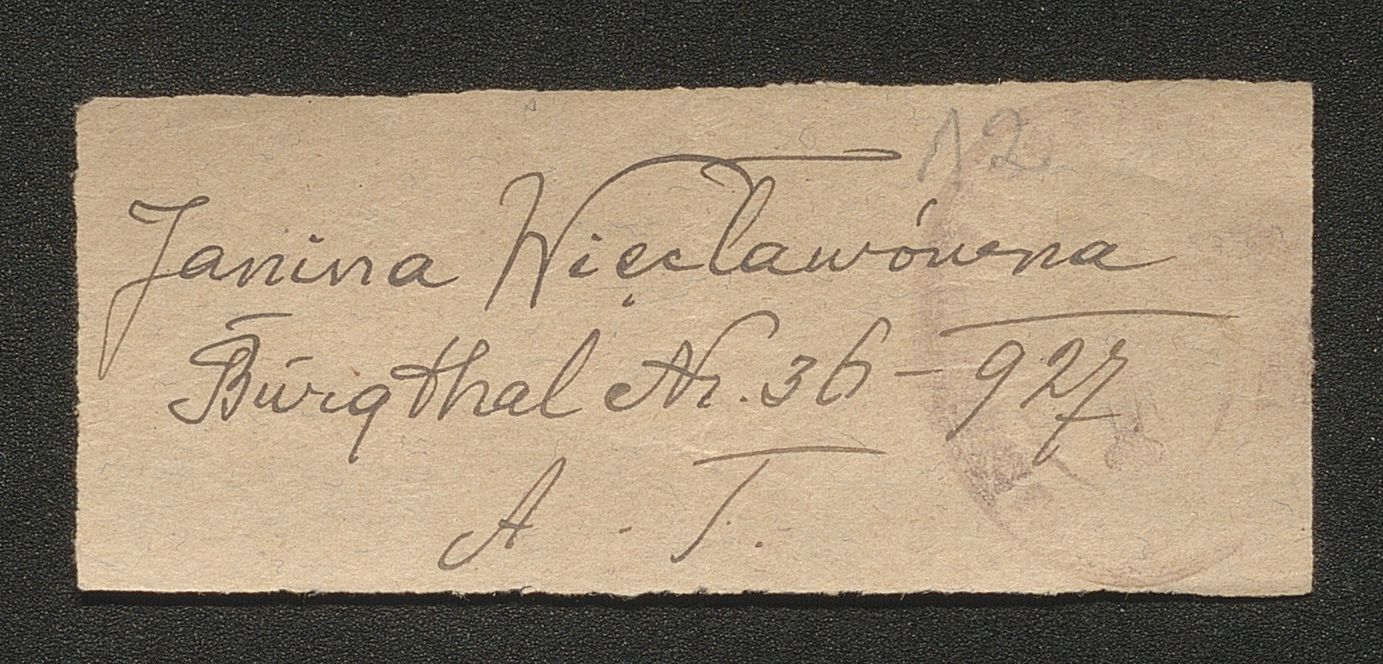 12
Janina Więcławówna
Burgthal Nr. 36 - 927
A. T.